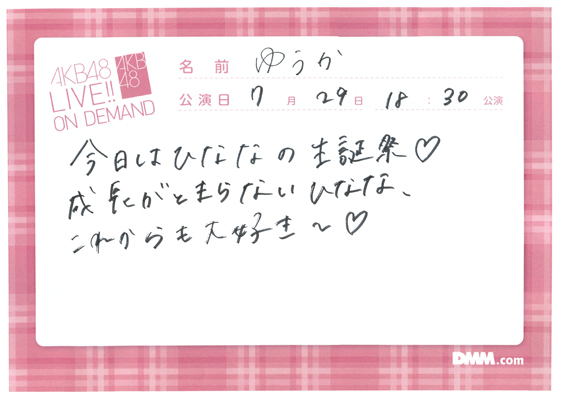 AKB48
LIVE!!
ON DEMAND
AKB
48
名 前 ゆうか
公演日 7 月 29 日 18 : 30 公演
今日はひななの生誕祭♡
成長がとまらないひなな、
これからも大好き～♡
DMM.com